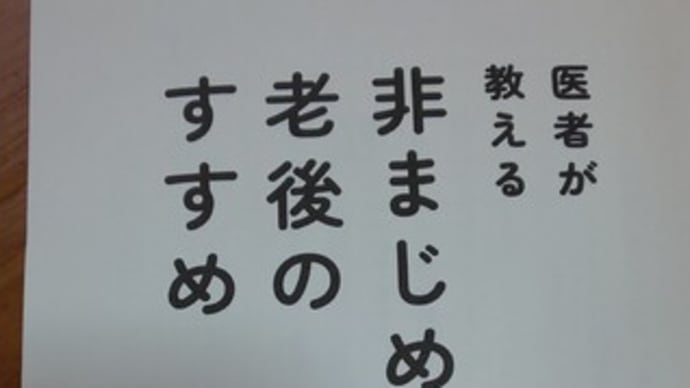 医者が
教える
非まじめ
老後の
すすめ